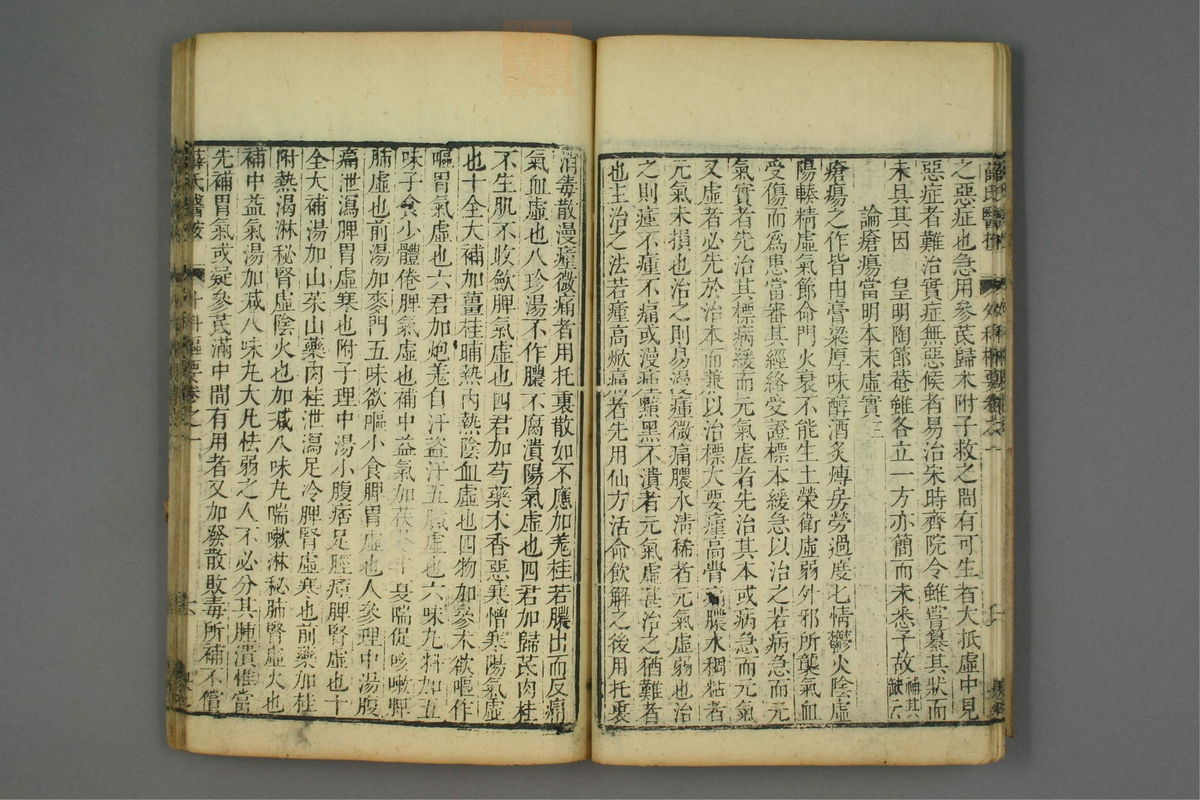 之惡症也急用參芪歸朮附子救之間有可生者大抵虛中見
惡症者難治實症無惡候者易治宋時齊院令雖嘗纂其狀而
未具其因 皇明陶節菴雖各立一方亦簡而未悉予故補其缺云
論瘡瘍當明本末虛實三
瘡瘍之作皆由膏粱厚味醇酒炙煿房勞過度七情鬱火陰虛
陽輳精虛氣節命門火衰不能生土榮衛虛弱外邪所襲氣血
受傷而為患當審其經絡受證標本緩急以治之若病急而元
氣實者先治其標病緩而元氣虛者先治其本或病急而元氣
又虛者必先於治本而兼以治標大要瘇高膿水稠粘者
元氣未損也治之則易漫瘇微痛膿水清稀者元氣虛弱也治
之則難不瘇不痛或漫瘇黯黑不潰者元氣虛甚治之猶難者
也主治之法若瘇高焮痛者先用仙方活命飲解之後用托裏
消毒散漫瘇微痛者用托裏散如不應加羌桂若膿出而反痛
氣血虛也八珍湯不作膿不腐潰陽氣虛也四君加歸芪肉桂
不生肌不收斂脾氣虛也四君加芍藥木香惡寒憎寒陽氣虛
也十全大補加薑桂晡熱內熱陰血虛也四物加參朮欲嘔作
嘔胃氣虛也六君加炮羌自汗盜汗五臟虛也六味丸料加五
味子食少體倦脾氣虛也補中益氣加茯苓喘促咳嗽脾
肺虛也前湯加麥門五味欲嘔小食脾胃虛也人參理中湯腹
痛泄瀉脾胃虛寒也附子理中湯小腹痞足脛瘇脾腎虛也十
全大補湯加山茱山藥肉桂泄瀉足冷脾腎虛寒也前藥加桂
附熱渴淋秘腎虛陰火也加減八味丸喘嗽淋秘肺腎虛火也
補中益氣湯加減八味丸大凡怯弱之人不必分其腫潰惟當
先補胃氣或疑參芪滿中間有用者又加發散敗毒所補不償
薛氏醫按 卷之一